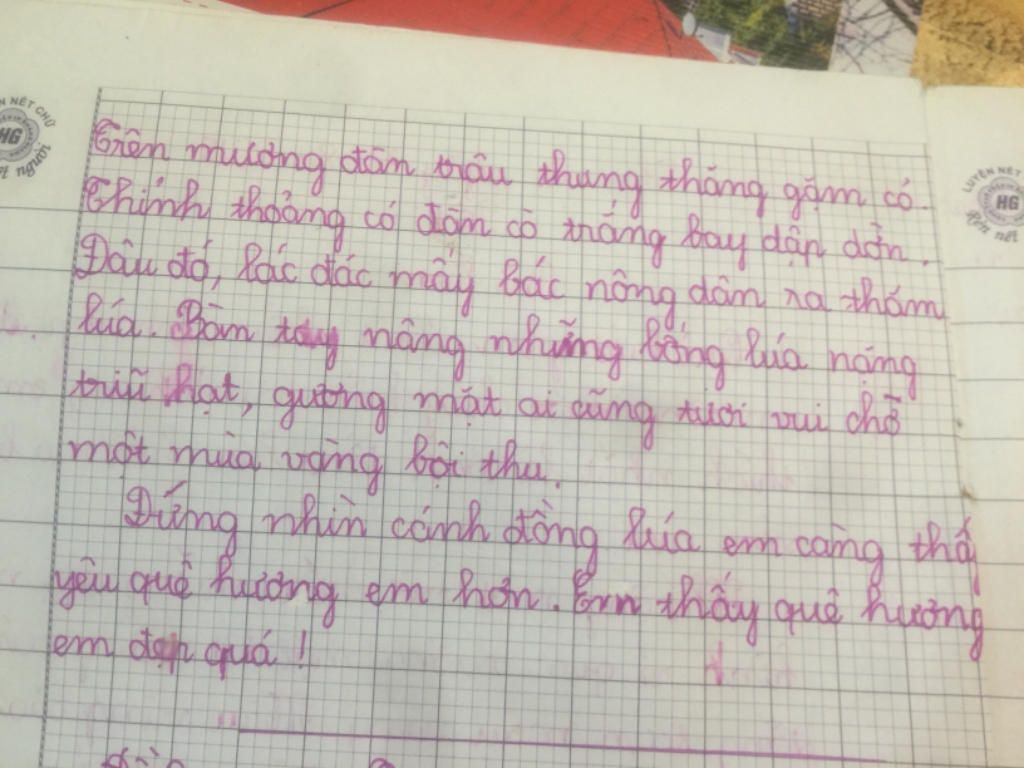 Trên mương đám trâu thung thăng gặm cỏ.
Thỉnh thoảng có đám cò trắng bay dập dờn.
Đâu đó, lác đác mấy bác nông dân ra thăm
lúa. Bàn tay nâng những bông lúa nặng
trĩu hạt, gương mặt ai cũng tươi vui chờ
một mùa vàng bội thu.
Đứng nhìn cánh đồng lúa em càng thấy
yêu quê hương em hơn. Em thấy quê hương
em đẹp quá!
LUYỆN NÉT CHỮ
HG
Rèn nết
HG
nết người